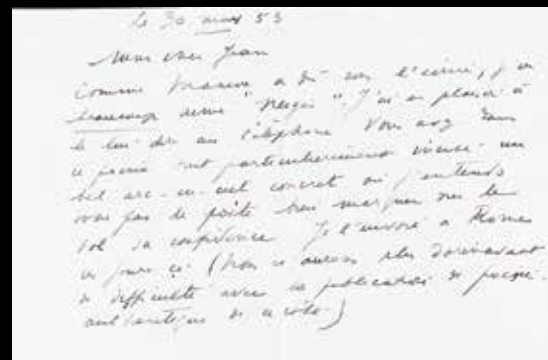 le 30 mars 53
Mon cher Jean
Comme a dû vous l'écrire, j'ai
beaucoup aimé " ". J'ai eu plaisir à
le lui dire au téléphone Vous avez dans
ce poème particulièrement un
bel arc-en-ciel concret où j'entends
votre pas de poète bien marquer sur le
sol sa compétence Je l'envoie à Rome
ces jours ci (Nous n'aurons plus dorénavant
de difficulté avec la publication de poèmes
authentiques de ce côté)